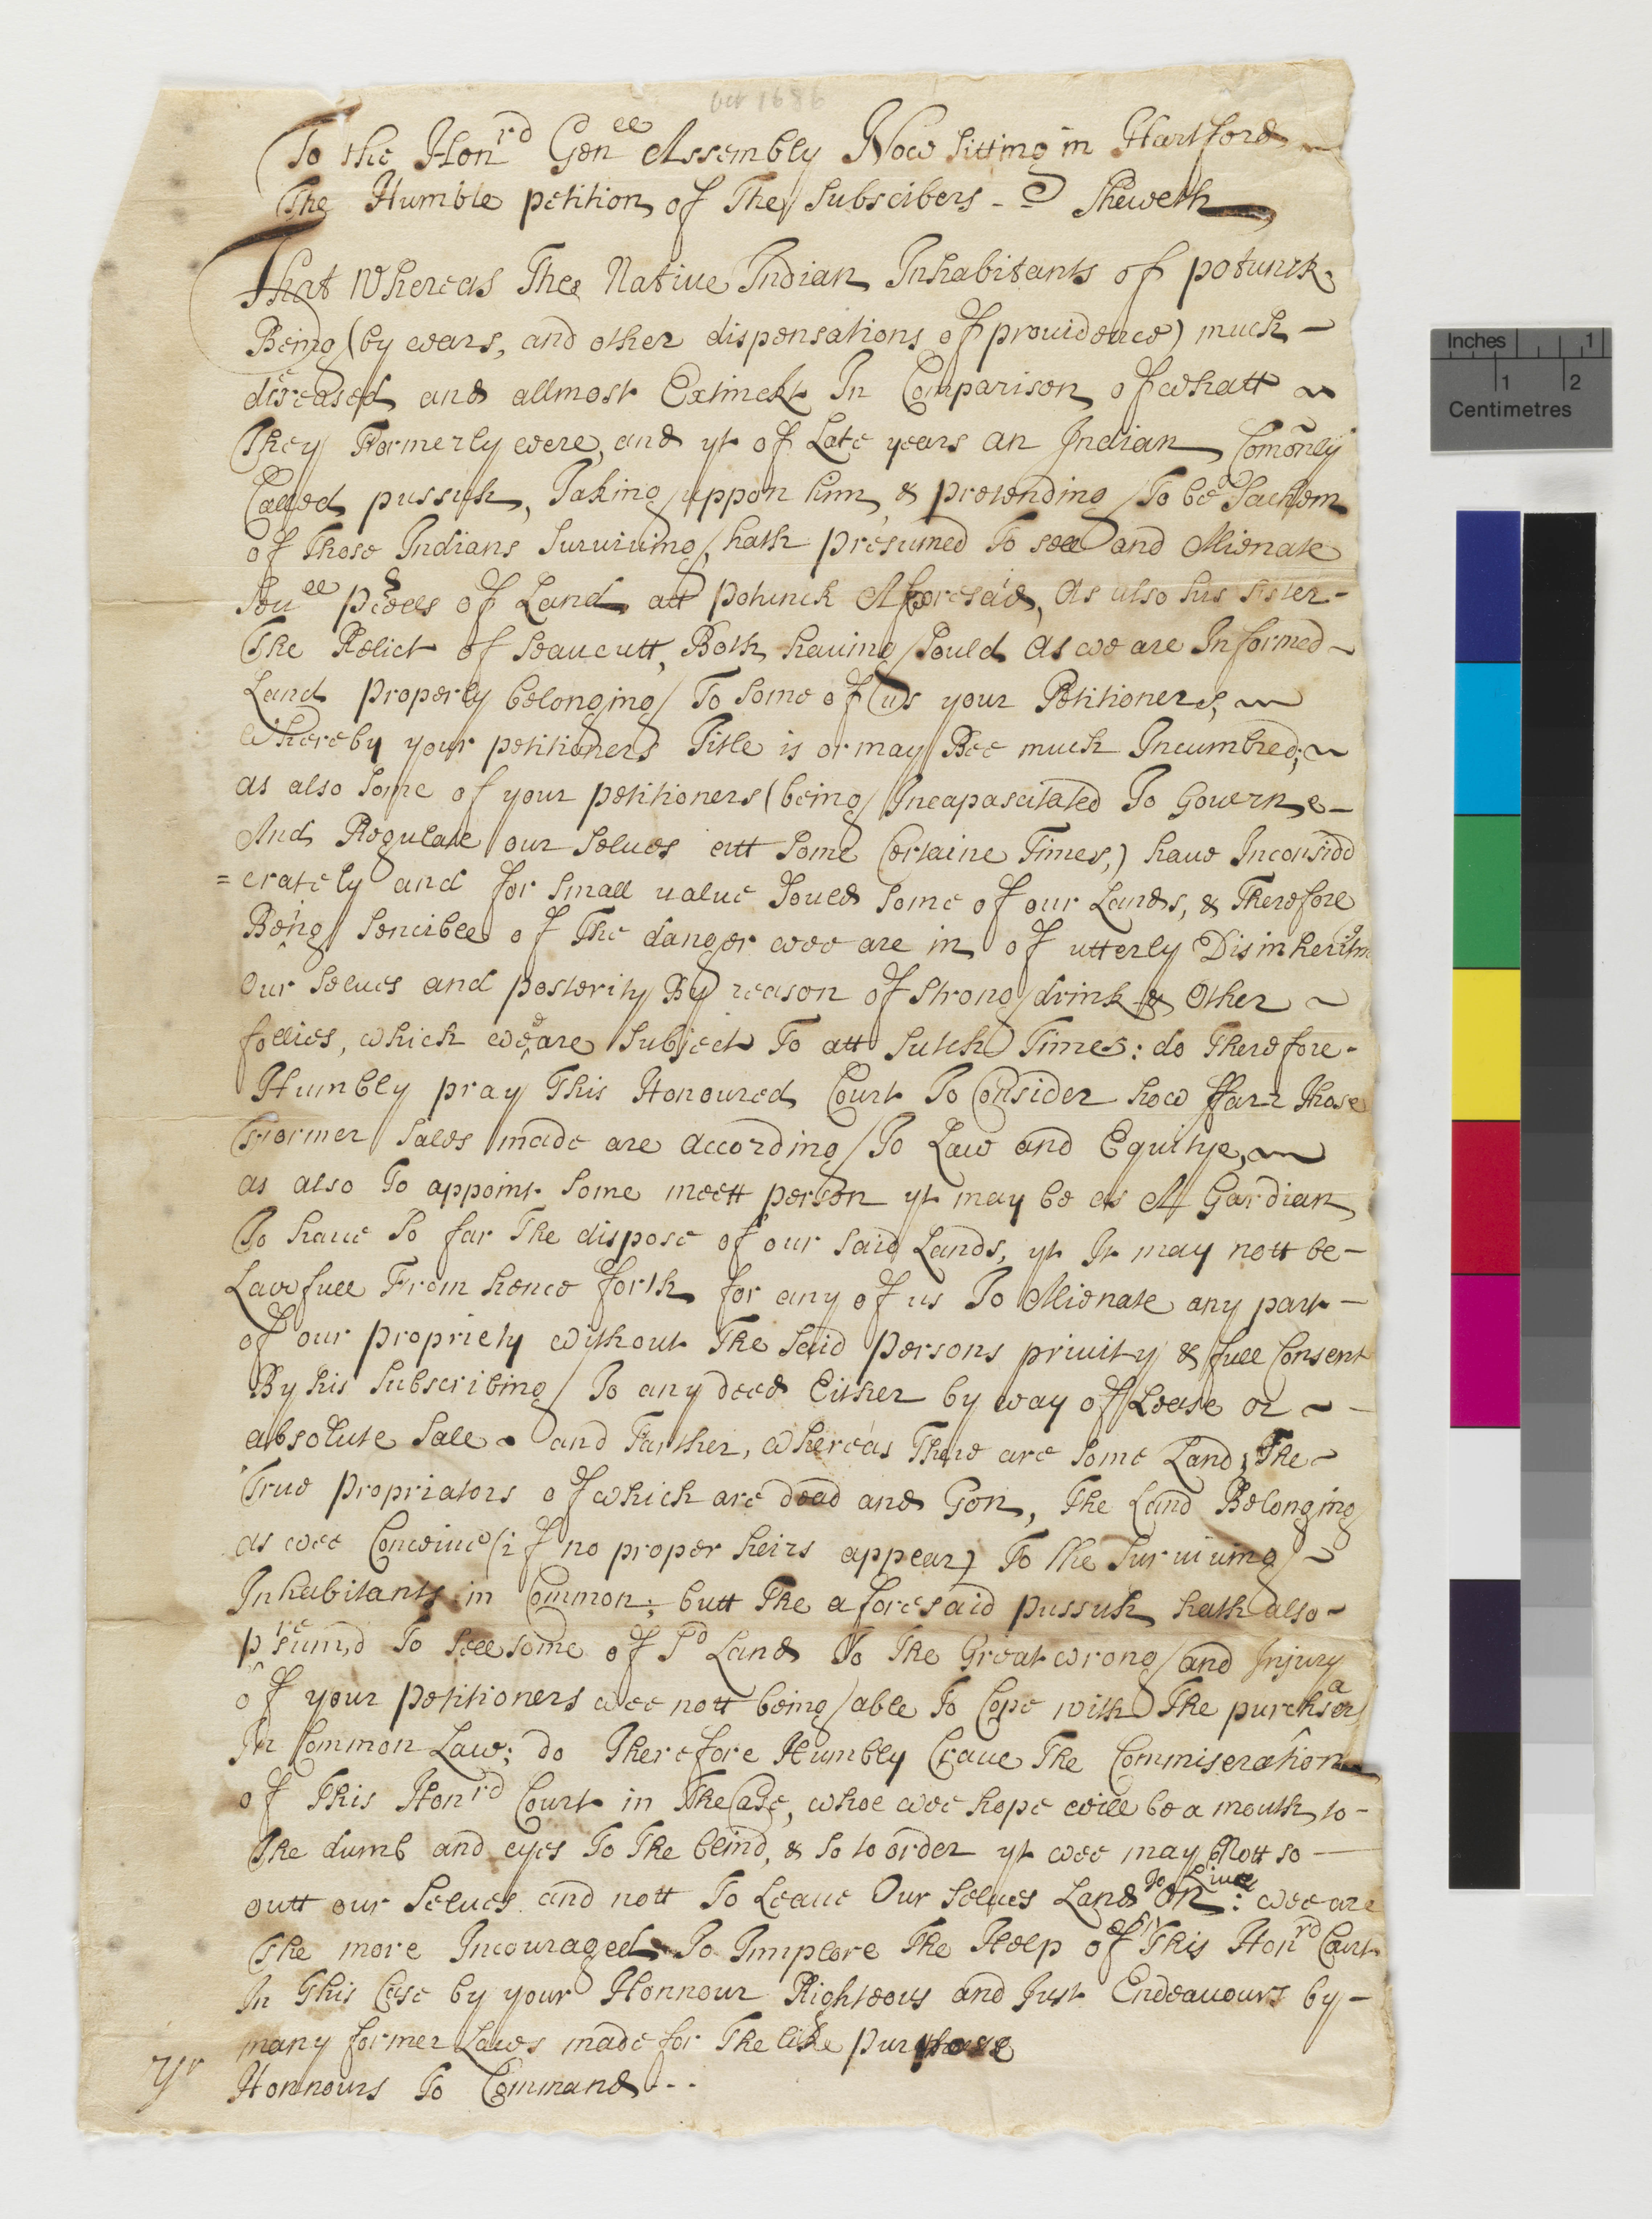 Oct 1686
To the Honrd Genll Assembly Now sitting in Hartford
The Humble petition of The Subscibers - Sheweth
That Whereas The Native Indian Inhabitants of potunck
Being (by wars, and other dispensations of prouidence) much -
decreased and allmost Extinckt In Comparison of whatt
They Formerly were, and yt of Late years an Indian Comonly
Called pussuk, Taking uppon him & pretending To be Sachem
of Those Indians Suruiuing, hath presumed To sell and Alienate
Seull pcells of Land att potunck Aforesaid, As also his sister -
The Relict of Seaucutt, Both hauing Sould As we are Informed
Land properly belonging To some of us your Petitioners,
Whereby your petitioners Title is or may Bee much Incumbred;
as also some of your petitioners (being Incapascitated To Gouerne -
And Regulate our Selues att some Certaine Times,) haue Inconsidd
=erately and for small ualue Sould some of our Lands, & Therefore
Being Sencible of The danger wee are in of utterly Disinheriting
Our Selues and posterity By reason of strong drink & Other
follies, which we are Subject To att sutch Times: do Therefore -
Humbly pray This Honoured Court To Consider how ffarr Those
Former Sales made are according To Law and Equitye,
as also To appoint some meett person yt may be as A Gardian
To haue So far The dispose of our said Lands, yt It may nott be -
Lawfull From hence forth for any of us To Alienate any part -
of our propriety without The said persons priuity & full Consent
By his Subscribing To any deed Either by way of Lease or -
absolute Sale and Farther, whereas There are some Land; The
True Propriators of which are dead and Gon, The Land Belonging
as wee Conceiue (if no proper heirs appear) To the Suruiuing
Inhabitants in Common; butt The aforesaid pussuk hath also -
presum,d To sell some of Sd Land To The Great wrong and Injury
of your petitioners wee nott being able To Cope with The purchaser
In Common Law; do Therefore Humbly Craue The Commiseration
of This Honrd Court in The Case, whoe wee hope will be a mouth to -
The dumb and eyes To The blind, & so to order yt wee may Nott so -
outt our Selues and nott To Leaue Our Selues Land To Liue On: wee are
The more Incouraged To Implore The Help of This Honrd Court
In This Case by your Honnour Righteous and Just Endeauours by -
many former Laws made for The like purpose
Yr Honnours To Command - - -
Inches 1
1 2
Centimetres